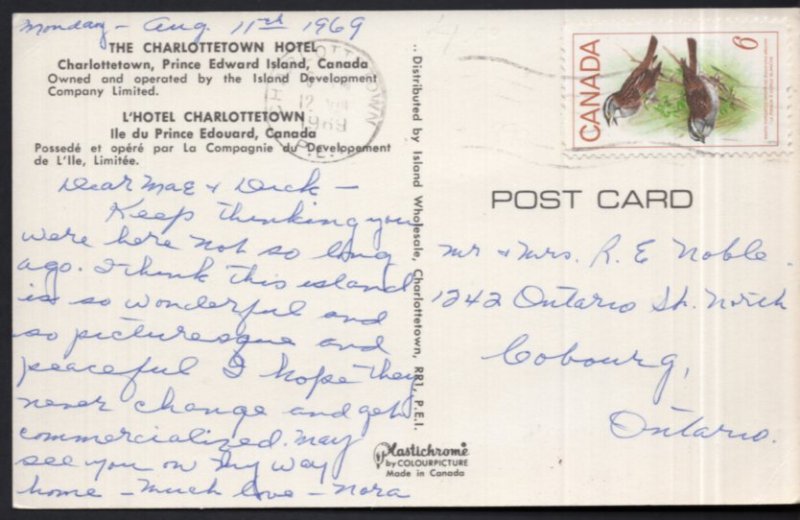 Monday - Aug 11th 1969
THE CHARLOTTETOWN HOTEL
Charlottetown, Prince Edward Island, Canada
Owned and operated by the Island Development
Company Limited.
L'HOTEL CHARLOTTETOWN
Ile du Prince Edouard, Canada
Possedé et opéré par La Compagnie du Developement
de L'Ile, Limitée.
Dear Mae & Dick -
Keep thinking you
were here not so long
ago. I think this island
is so wonderful and
so picturesque and
peaceful I hope they
never change and get
commercialized. May
see you on my way
home - Much love - Nora
.. Distributed by Island Wholesale, Charlottetown, RR1, P.E.I.
Plastichrome
by COLOURPICTURE
Made in Canada
CHARLOTTETOWN
12
1969
P.E.I.
CANADA
6
POST CARD
Mr & Mrs. R. E Noble.
1242 Ontario St. North
Cobourg,
Ontario.